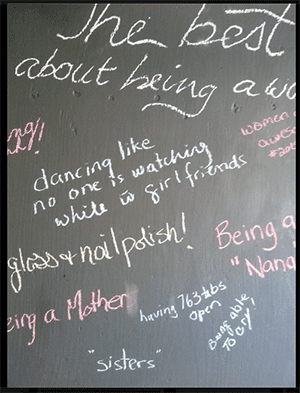 The best
about being a wo
women a
awes
#20
dancing like
no one is watching
while w girlfriends
gloss & nail polish!
Being a
"Nana
eing a Mother
having 763 tabs
open
Being able
To cry!
"sisters"